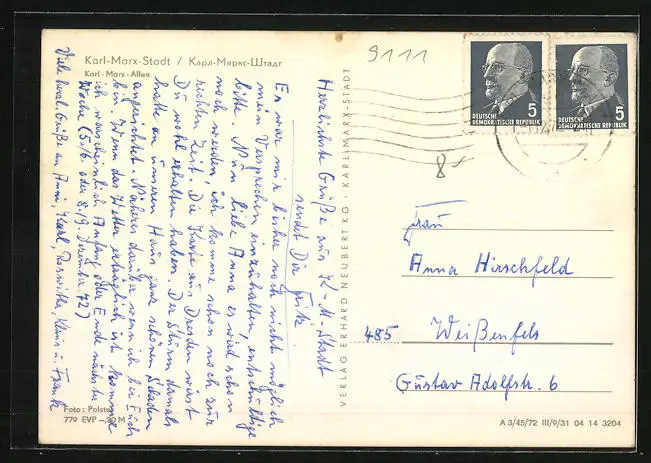 Karl-Marx-Stadt / Карл-Маркс-Штадт
Karl-Marx-Allee
9111
DEUTSCHE
DEMOKRATISCHE REPUBLIK
5
DEUTSCHE
DEMOKRATISCHE REPUBLIK
5
Herzlichste Grüße aus K-M-Stadt
sendet Dir Fritz.
Es war mir bisher noch nicht möglich
mein Versprechen einzuhalten, entschuldige
bitte. Nun liebe Anna es wird schon
noch werden, ich komme schon noch zur
rechten Zeit. Die Karte aus Dresden wirst
Du wohl erhalten haben. Der Sturm damals
hatte an unseren Haus ganz schönen Schaden
angerichtet. Näheres darüber wenn ich bei Euch
bin. Wenn das Wetter erträglich ist komme
ich warscheinlich Anfang oder Ende nächster
Woche (5./6. oder 8./9. Dezember 72)
Viele herzl. Grüße an Anni, Karl, Roswitha, Klaus u. Frank
VERLAG ERHARD NEUBERT KG · KARL-MARX-STADT
8
Frau
Anna Hirschfeld
485 Weißenfels
Gustav Adolfstr. 6
Foto: Polster
779 EVP -,20 M
A 3/45/72 III/9/31 04 14 3204